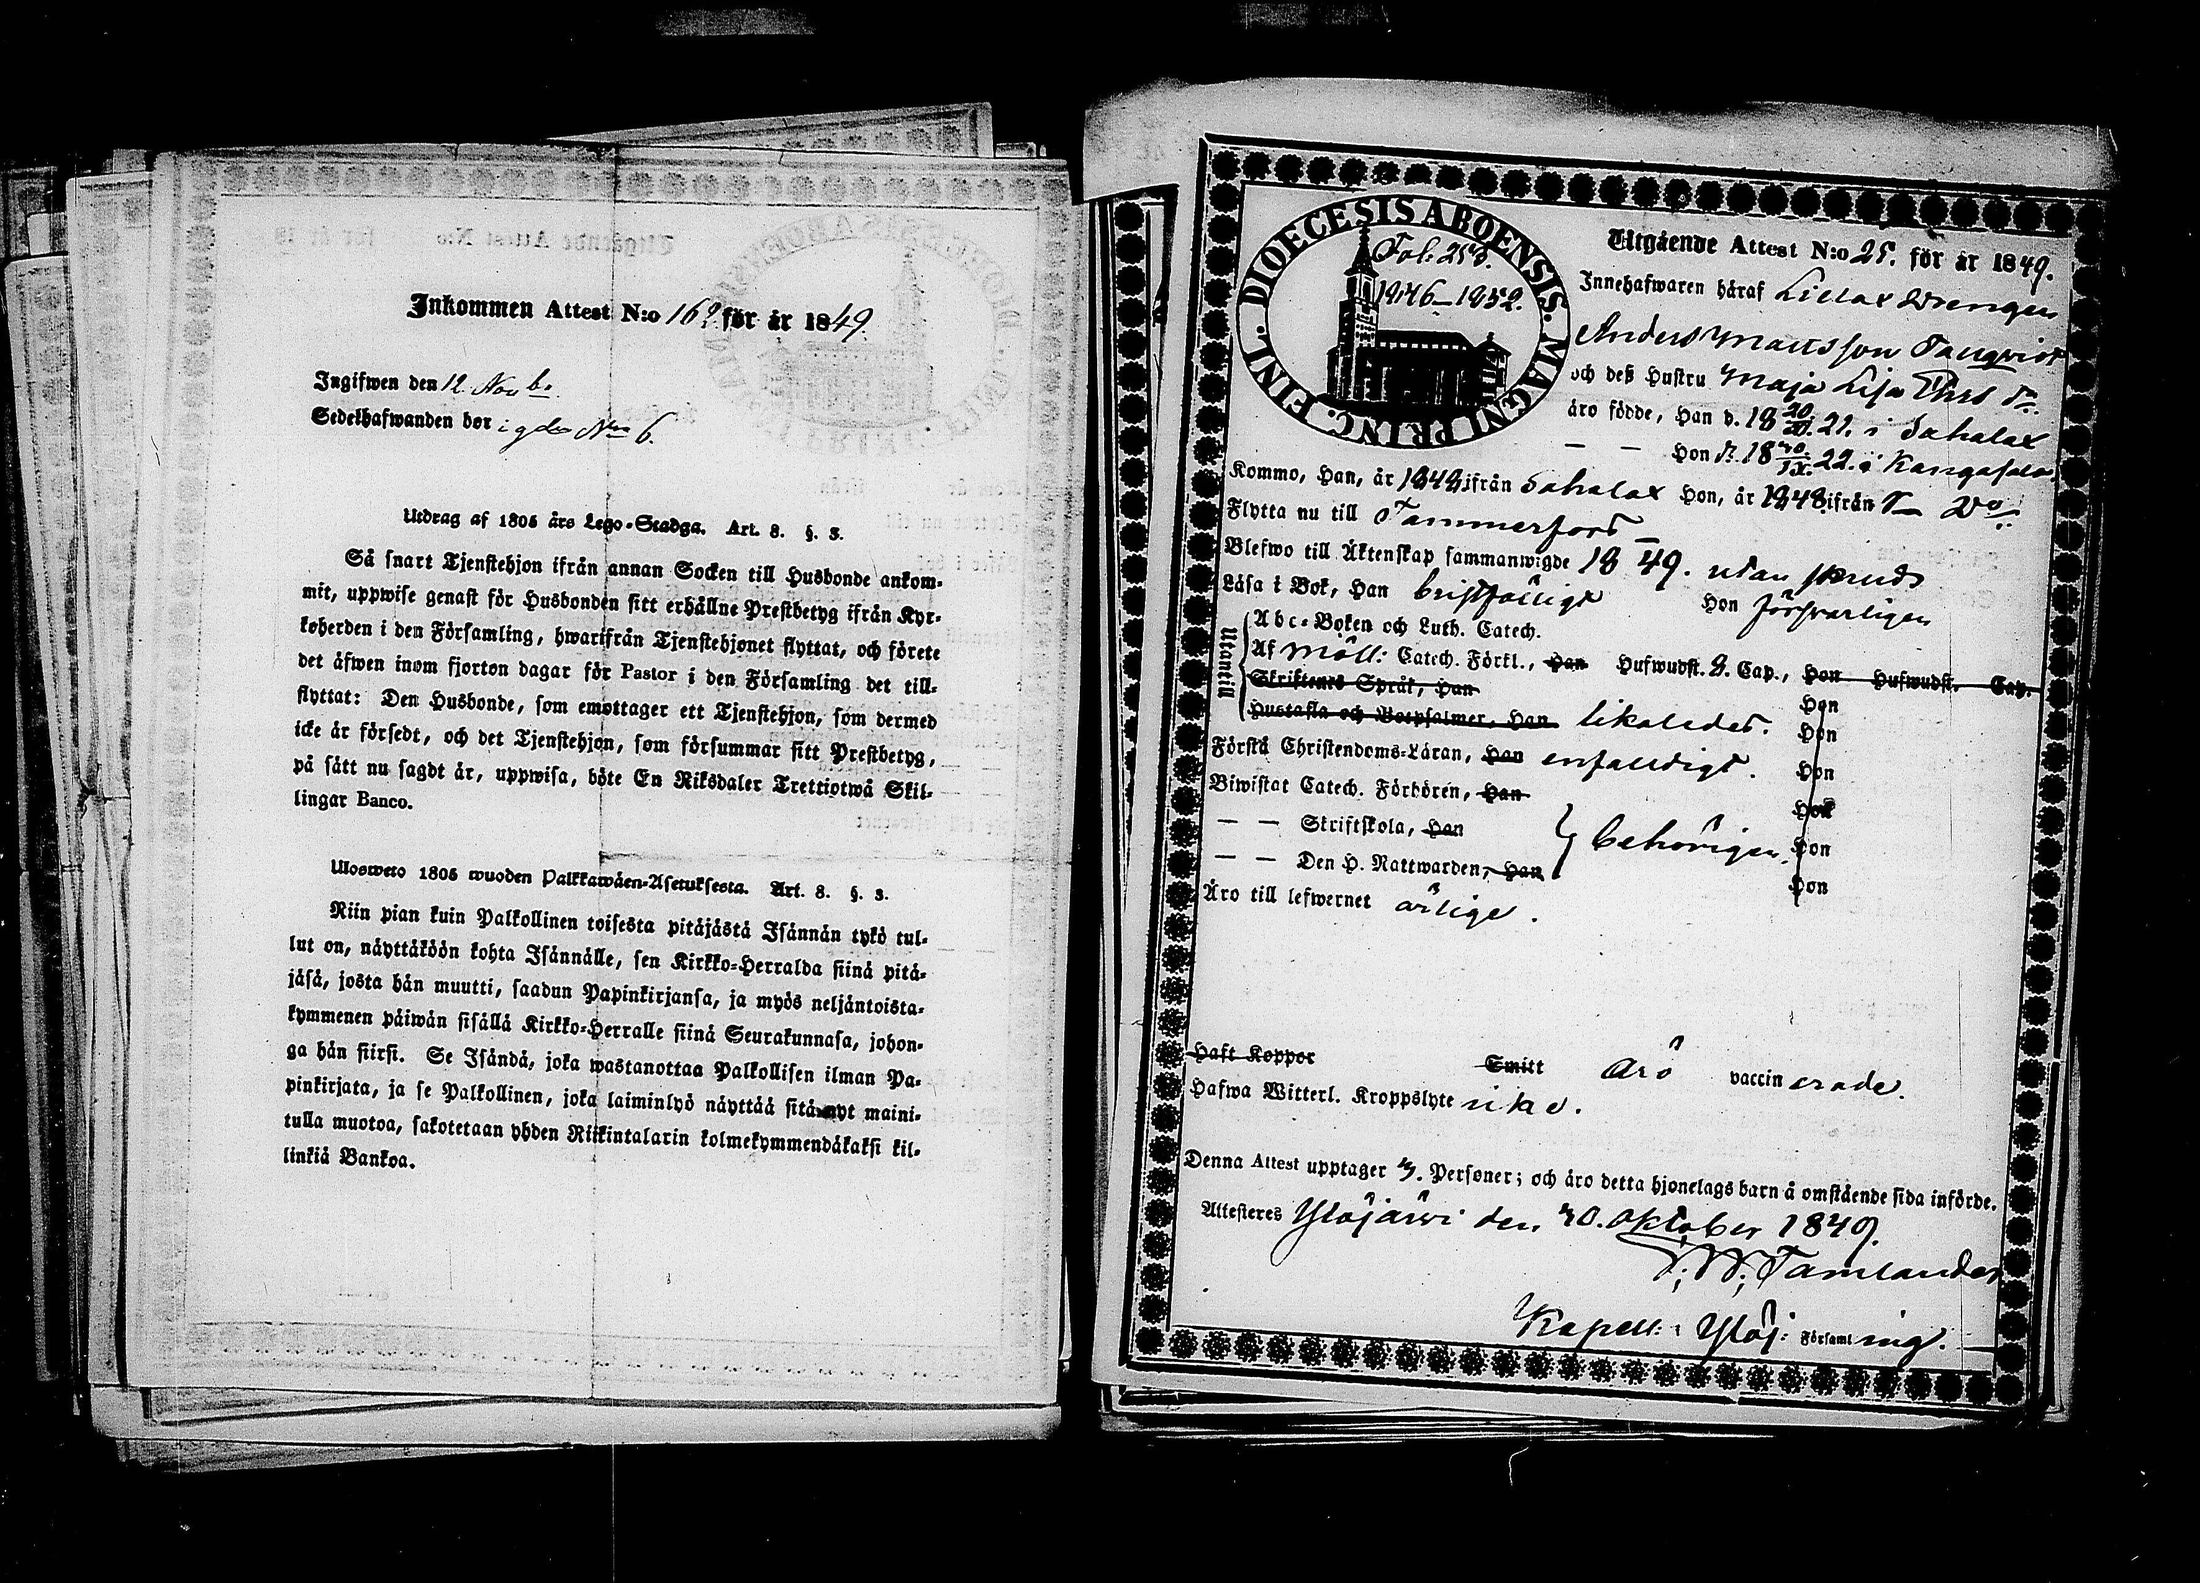 Inkommen Attest N:o 162 för år 1849.
Ingifwen den 12 Novb.
Sedelhafwanden bor i gden N:o 6.
Utdrag af 1805 års Lego-Stadga. Art. 8. §. 3.
Så snart Tjenstehjon ifrån annan Socken till Husbonde ankom-
mit, uppwise genast för Husbonden sitt erhållne Prestbetyg ifrån Kyr-
koherden i den Församling, hwarifrån Tjenstehjonet flyttat, och förete
det äfwen inom fjorton dagar för Pastor i den Församling det till-
flyttat: Den Husbonde, som emottager ett Tjenstehjon, som dermed
icke är försedt, och det Tjenstehjon, som försummar sitt Prestbetyg,
på sätt nu sagdt är, uppwisa, böte En Riksdaler Trettiotwå Skil-
lingar Banco.
Ulosweto 1805 wuoden Palkkawäen-Asetuksesta. Art. 8. §. 3.
Niin pian kuin Palkollinen toisesta pitäjästä Isännän tykö tul-
lut on, näyttäköön kohta Isännälle, sen Kirkko-Herralda siinä pitä-
jäsä, josta hän muutti, saadun Papinkirjansa, ja myös neljäntoista-
kymmenen päiwän sisällä Kirkko-Herralle siinä Seurakunnasa, johon-
ga hän siirsi. Se Isändä, joka wastanottaa Palkollisen ilman Pa-
pinkirjata, ja se Palkollinen, joka laiminlyö näyttää sitä nyt maini-
tulla muotoa, sakotetaan yhden Riikintalarin kolmekymmendäkaksi kil-
linkiä Bankoa.
FINL. DIOECESIS ABOENSIS. MAGNI PRINC.
Fol: 253.
1846-1852.
Utgående Attest N:o 25. för år 1849.
Innehafwaren häraf
Anders Mattsson
och deß Hustru Maja Lisa Thos Dr.
äro födde, Han d. 18 20/20. 21. i Sahalax
— — Hon d. 18 30/IX. 22. i Kangasala
Kommo, Han, år 1848, ifrån Sahalax Hon, år 1848 ifrån
Flytta nu till Tammerfors
Blefwo till Äktenskap sammanwigde 18 — 49. utan
Läsa i Bok, Han bristfälligt Hon försvarligen
Utantill
Abc-Boken och Luth. Catech.
Af Möll: Catech. Förkl., Han Hufwudst. 8. Cap., Hon Hufwudst. Cap.
Skriftenes Språk, Han Hon
Hustafla och Botpsalmer, Han likaledes. Hon
Förstå Christendoms-Läran, Han enfaldigt. Hon
Biwistat Catech. Förhören, Han Hon
— — Skriftskola, Han behörigen. Hon
— — Den H. Nattwarden, Han Hon
Äro till lefwernet ärlige.
Haft Koppor Smitt Äro vaccinerade.
Hafwa Witterl. Kroppslyte icke.
Denna Attest upptager 3. Personer; och äro detta hjonelags barn å omstående sida införde.
Attesteras Ylöjärvi den 30. Oktober 1849.
F: W: Tamlander
Kapell: i Ylöj: Församlingt.